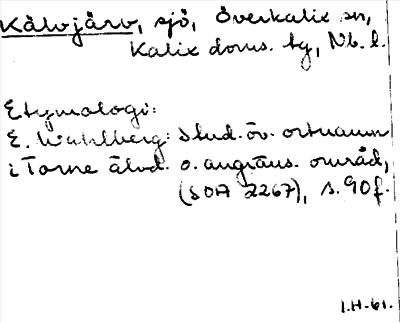 Kälvjärv, sjö, Överkalix sn,
Kalix doms. tg, Nb. l.
Etymologi:
E. Wahlberg: Stud. öv. ortnamn
i Torne älvd. o. angräns. områd,
(SOA 2267), s. 90 f.
I.H-61.